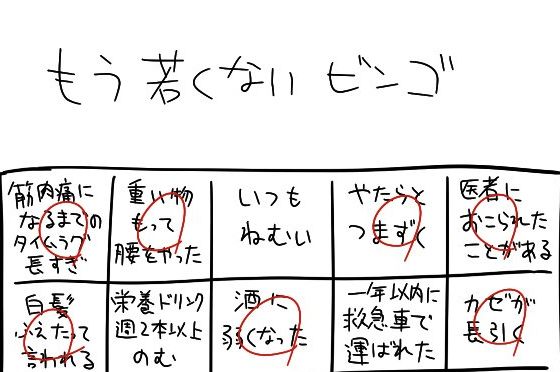 もう若くない ビンゴ
筋肉痛に
なるまでの
タイムラグ
長すぎ
重い物
もって
腰をやった
いつも
ねむい
やたらと
つまずく
医者に
おこられた
ことがある
白髪
ふえたって
言われる
栄養ドリンク
週2本以上
のむ
酒に
弱くなった
一年以内に
救急車で
運ばれた
カゼが
長引く